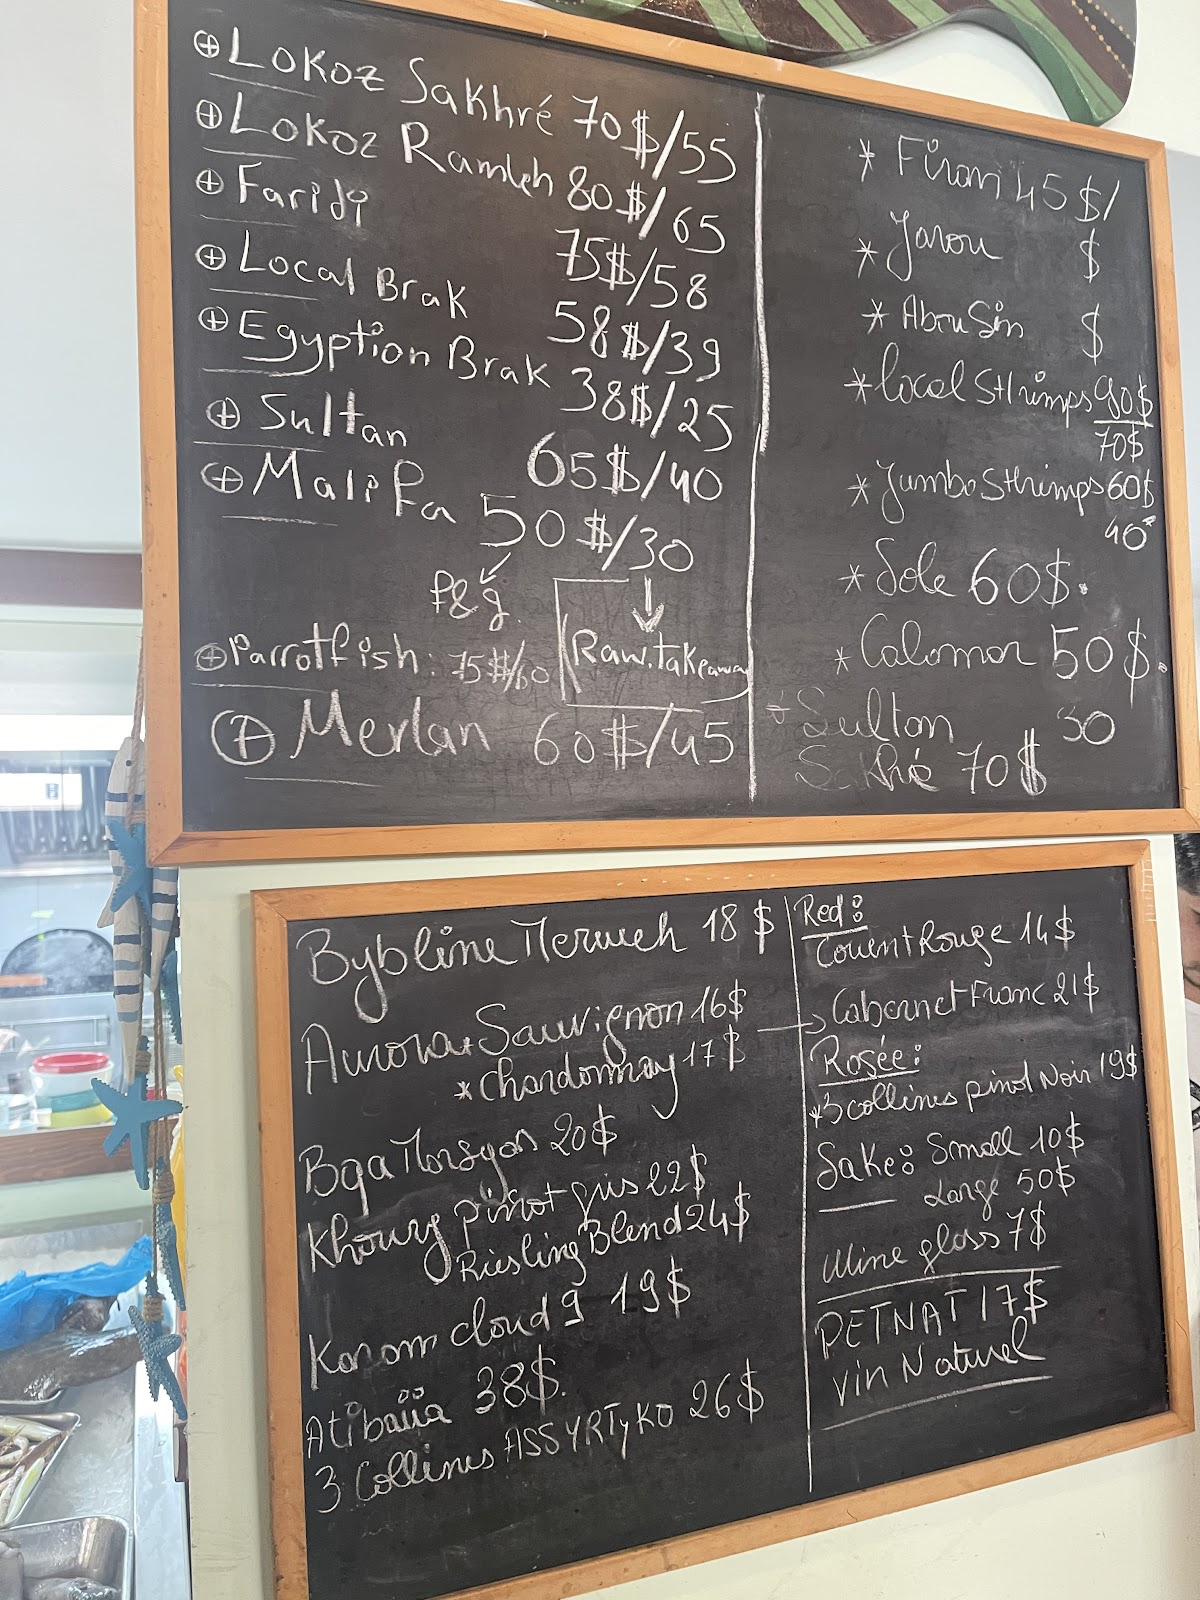 ⊕ Lokoz Sakhré 70$/55
⊕ Lokoz Ramleh 80$/65
⊕ Faridi 75$/58
⊕ Local Brak 58$/39
⊕ Egyption Brak 38$/25
⊕ Sultan 65$/40
⊕ Malifa 50$/30
f&g.
Raw.takeaway
⊕ Parrotfish: 75$/60
⊕ Merlan 60$/45
* Firan 45$/
* Jarou $
* Abou Sin $
* local Sthrimps 90$
70$
* Jumbo Sthrimps 60$
40$
* Sole 60$.
* Calamar 50$.
30
+ Sulton
Sakhré 70$
Bybline Merweh 18$
Aurora * Sauvignon 16$
* Chardonnay 17$
Bqa Morsyan 20$
Khoury pinot gris 22$
Riesling Blend 24$
Karam cloud 9 19$
Atibaïa 38$.
3 Collines ASSYRTyKO 26$
Red:
Couvent Rouge 14$
→ Cabernet Franc 21$
Rosée:
* 3 collines pinot Noir 19$
Sake: Small 10$
Large 50$
Wine glass 7$
PETNAT 17$
vin Naturel